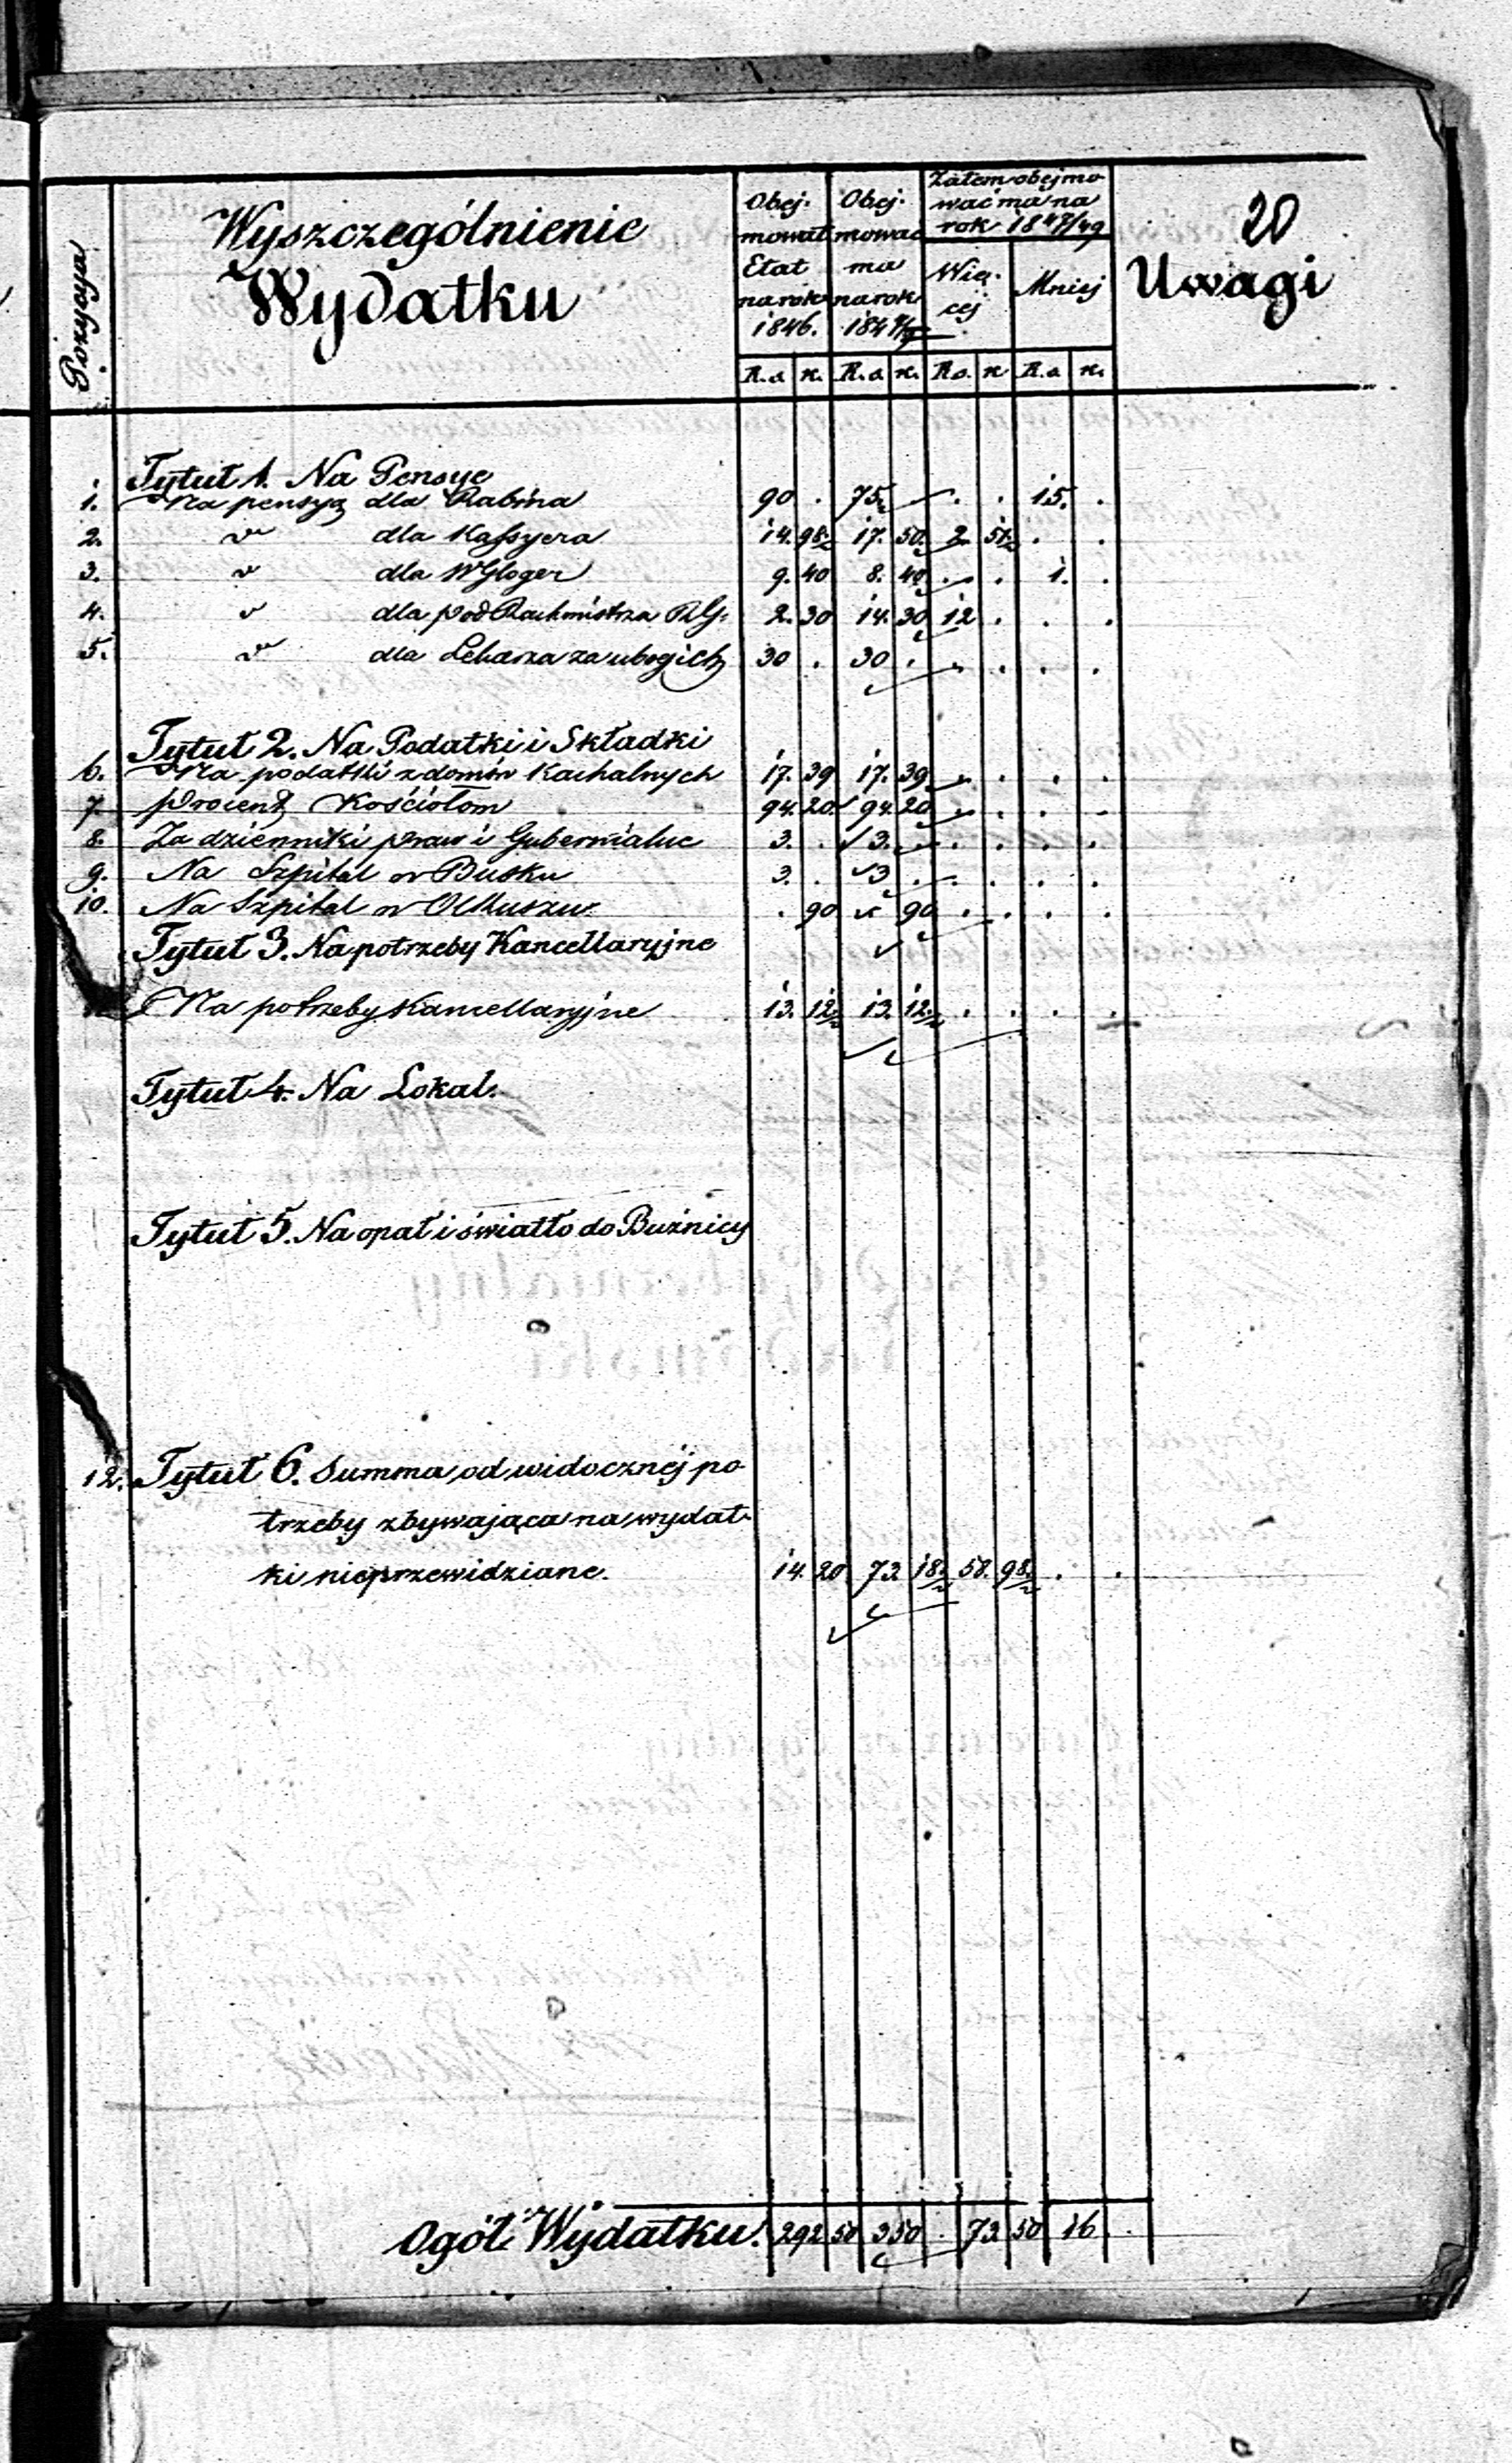 20
Pozycya
Wyszczególnienie
Wydatku
Obej-
mował
Etat
na rok
1846.
Obej-
mować
ma
na rok
184 7/9
Zatem obejmo-
wać ma na
rok 1847/49
Wię-
cej
Mniej
Uwagi
R.s. k. R.s. k. R.s. k. R.s. k.
Tytuł 1. Na Pensye
1. Na pensyą dla Rabina 90 . 75. . . 15. .
2. " dla Kassyera 14. 98½ 17. 50. 2 51½ . .
3. " dla W Gloger 9. 40 8. 40 . . 1. .
4. " dla pod Rachmistrza RG. 2. 30 14. 30 12 . . .
5. " dla Lekarza za ubogich 30 . 30 . . . . .
Tytuł 2. Na Podatki i Składki
6. Na podatki z domów Kachalnych 17. 39 17. 39 . . . .
7 Procent Kościołom 94. 20. 94. 20 . . . .
8. Za dzienniki praw i Gubernialne 3. . 3. . . . . .
9. Na Szpital w Busku 3. . 3 . . . . .
10. Na Szpital w Olkuszu . 90 90 . . . .
Tytuł 3. Na potrzeby Kancellaryjne
Na potrzeby Kancellaryjne 13. 12½ 13. 12½ . . . .
Tytuł 4. Na Lokal.
Tytuł 5. Na opał i światło do Bużnicy
12. Tytuł 6. Summa od widocznéj po-
trzeby zbywająca na wydat-
ki nieprzewidziane. 14. 20 73 18½ 58. 98½ . .
Ogół Wydatku. 292 50 350 . 73 50 16 .